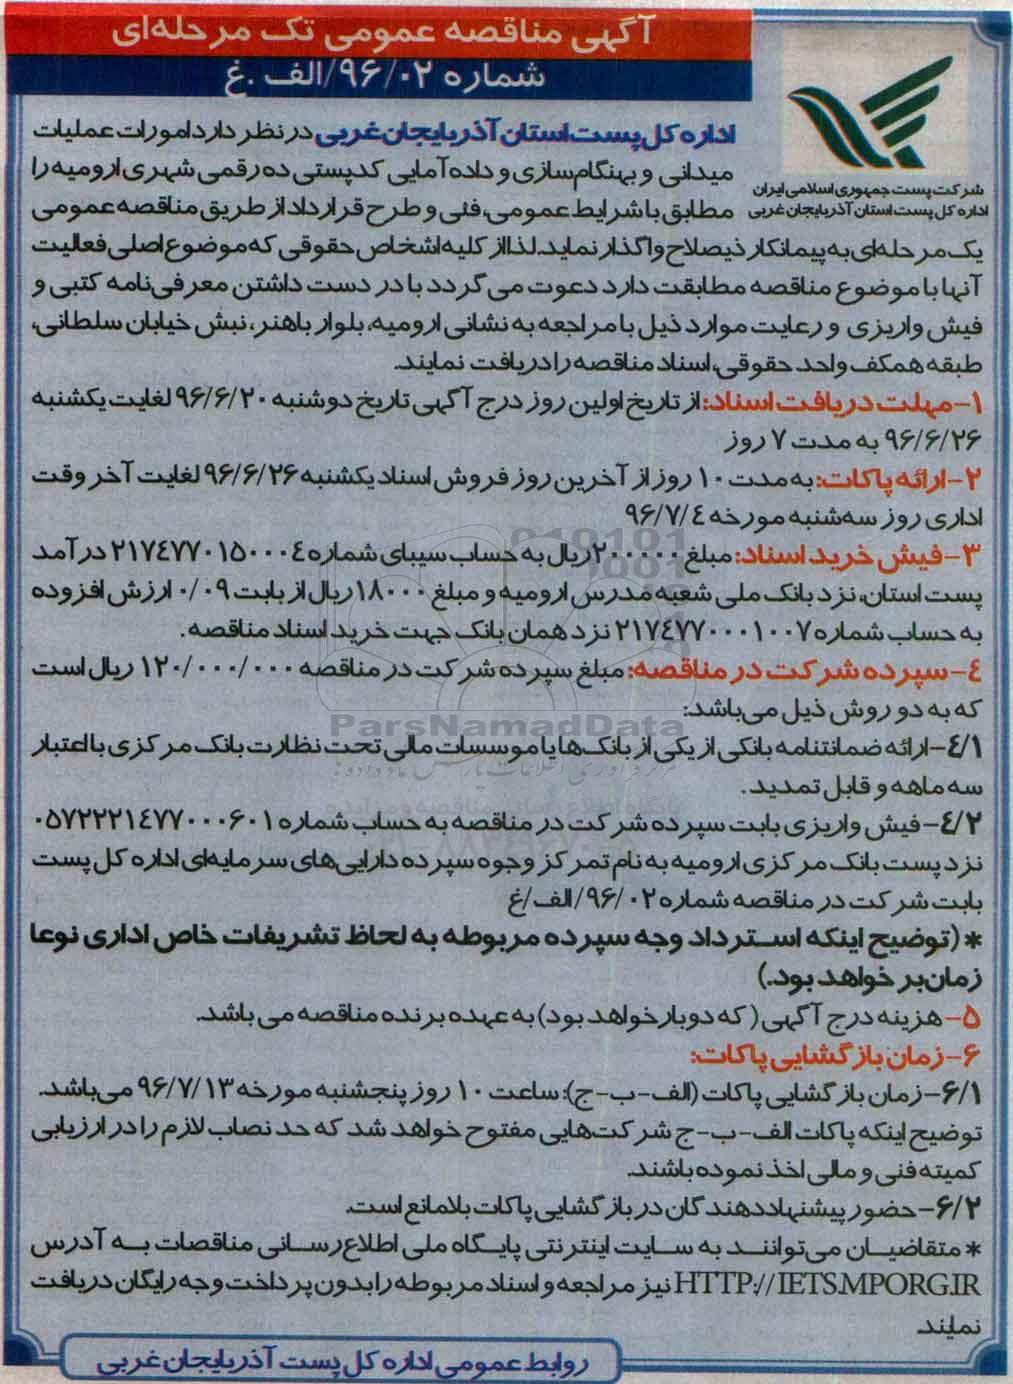 آگهی مناقصه عمومی تک مرحله‌ای
شماره ۹۶/۰۲/الف.غ
شرکت پست جمهوری اسلامی ایران
اداره کل پست استان آذربایجان غربی
اداره کل پست استان آذربایجان غربی در نظر دارد امورات عملیات
میدانی و بهنگام‌سازی و داده آمایی کدپستی ده رقمی شهری ارومیه را
مطابق با شرایط عمومی، فنی و طرح قرارداد از طریق مناقصه عمومی
یک مرحله‌ای به پیمانکار ذیصلاح واگذار نماید. لذا از کلیه اشخاص حقوقی که موضوع اصلی فعالیت
آنها با موضوع مناقصه مطابقت دارد دعوت می گردد با در دست داشتن معرفی‌نامه کتبی و
فیش واریزی و رعایت موارد ذیل با مراجعه به نشانی ارومیه، بلوار باهنر، نبش خیابان سلطانی،
طبقه همکف واحد حقوقی، اسناد مناقصه را دریافت نمایند.
۱- مهلت دریافت اسناد: از تاریخ اولین روز درج آگهی تاریخ دوشنبه ۹۶/۶/۲۰ لغایت یکشنبه
۹۶/۶/۲۶ به مدت ۷ روز
۲- ارائه پاکات: به مدت ۱۰ روز از آخرین روز فروش اسناد یکشنبه ۹۶/۶/۲۶ لغایت آخر وقت
اداری روز سه‌شنبه مورخه ۹۶/۷/۴
۳- فیش خرید اسناد: مبلغ ۲۰۰۰۰۰ ریال به حساب سیبای شماره ۲۱۷۴۷۷۰۱۵۰۰۰۴ درآمد
پست استان، نزد بانک ملی شعبه مدرس ارومیه و مبلغ ۱۸۰۰۰ ریال از بابت ۰/۰۹ ارزش افزوده
به حساب شماره ۲۱۷۴۷۷۰۰۰۱۰۰۷ نزد همان بانک جهت خرید اسناد مناقصه.
۴- سپرده شرکت در مناقصه: مبلغ سپرده شرکت در مناقصه ۱۲۰/۰۰۰/۰۰۰ ریال است
که به دو روش ذیل می‌باشد:
ParsNamadData
۴/۱- ارائه ضمانتنامه بانکی از یکی از بانک‌ها یا موسسات مالی تحت نظارت بانک مرکزی با اعتبار
سه ماهه و قابل تمدید.
پایگاه اطلاع رسانی مناقصه و مزایده
۴/۲- فیش واریزی بابت سپرده شرکت در مناقصه به حساب شماره ۰۵۷۲۲۲۱۴۷۷۰۰۰۶۰۱
نزد پست بانک مرکزی ارومیه به نام تمرکز وجوه سپرده دارایی‌های سرمایه‌ای اداره کل پست
بابت شرکت در مناقصه شماره ۹۶/۰۲/الف/غ
* (توضیح اینکه استرداد وجه سپرده مربوطه به لحاظ تشریفات خاص اداری نوعا
زمان‌بر خواهد بود.)
۵- هزینه درج آگهی ( که دوبار خواهد بود) به عهده برنده مناقصه می باشد.
۶- زمان بازگشایی پاکات:
۶/۱- زمان بازگشایی پاکات (الف- ب- ج): ساعت ۱۰ روز پنجشنبه مورخه ۹۶/۷/۱۳ می‌باشد.
توضیح اینکه پاکات الف- ب- ج شرکت‌هایی مفتوح خواهد شد که حد نصاب لازم را در ارزیابی
کمیته فنی و مالی اخذ نموده باشند.
۶/۲- حضور پیشنهاددهندگان در بازگشایی پاکات بلامانع است.
* متقاضیان می‌توانند به سایت اینترنتی پایگاه ملی اطلاع‌رسانی مناقصات به آدرس
HTTP://IETS.MPORG.IR نیز مراجعه و اسناد مربوطه را بدون پرداخت وجه رایگان دریافت
نمایند.
روابط عمومی اداره کل پست آذربایجان غربی